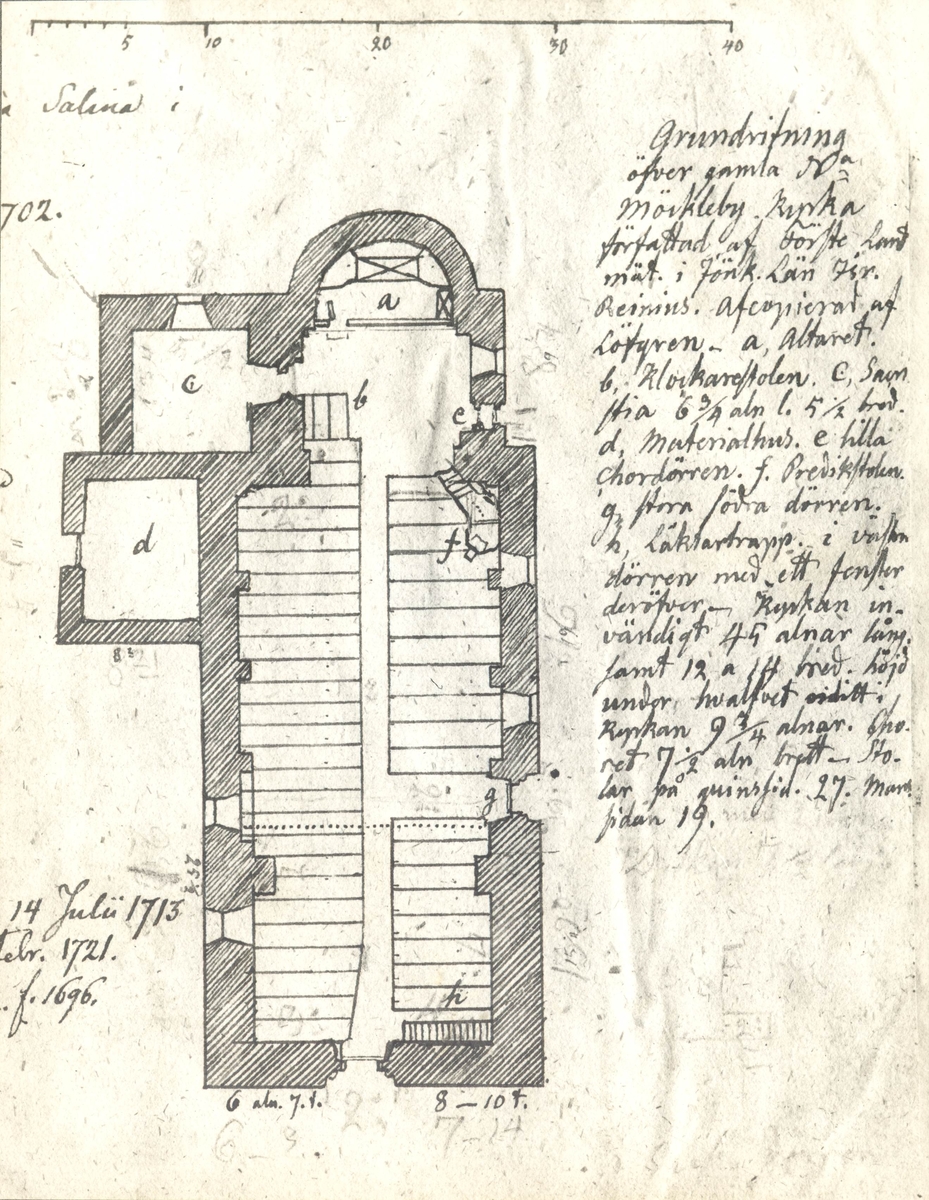 5 10 20 30 40
Salina i
702.
Grundritning
öfver gamla Nᵃ
Möckleby Kyrka
författad af Förste Land
mät. i Jönk. Län Hr.
Reinius. Afcopierad af
Löfgren - a, Altaret.
b, Klockarestolen. C, Sacri
stia 6 3/4 aln l. 5 1/2 bred.
d, Materialhus. e lilla
Chordörren. f. Predikstolen.
g, stora södra dörren.
h, Läktartrapp. i västra
dörren med ett fenster
deröfver - Kyrkan in-
vändigt 45 alnar lång,
samt 12 a 14 bred. höjd
under hvalfvet midtt i
Kyrkan 9 3/4 alnar. Cho-
ret 7 1/2 aln brett - Sto-
lar på quinssid. 27. Mans
sidan 19.
a
b
c
d
e
f
g
h
14 Julii 1713
febr. 1721.
f. 1696.
6 aln. 7. t.
8 - 10 t.